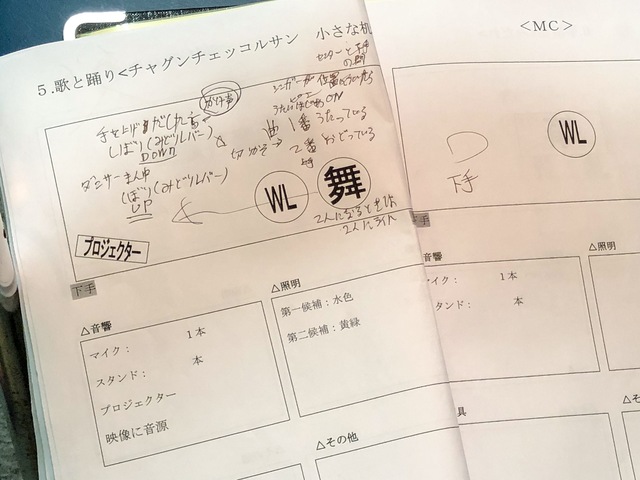 5.歌と踊り<チャグンチェッコルサン 小さな机
かけ声
手を上げ だしれる
しぼり(みどりレバー)
DOWN
ダンサーまん中
しぼり(みどりレバー)
UP
センターと下手
の間
シンガーが位置
ON
曲 1番 うたっている
2番 おどっている
WL
舞
2人になると
2人にライト
プロジェクター
下手
△音響
マイク: 1本
スタンド: 本
プロジェクター
映像に音源
△照明
第一候補:水色
第二候補:黄緑
△その他
<MC>
WL
下手
下手
音響
マイク: 1本
スタンド: 本
△照明
具
△そ